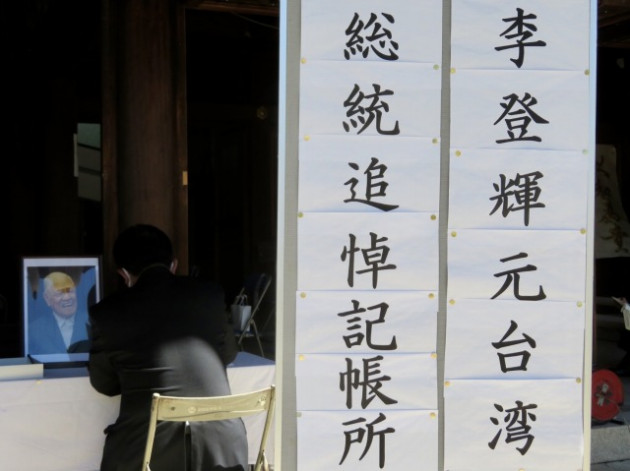 李登輝元台湾
総統追悼記帳所